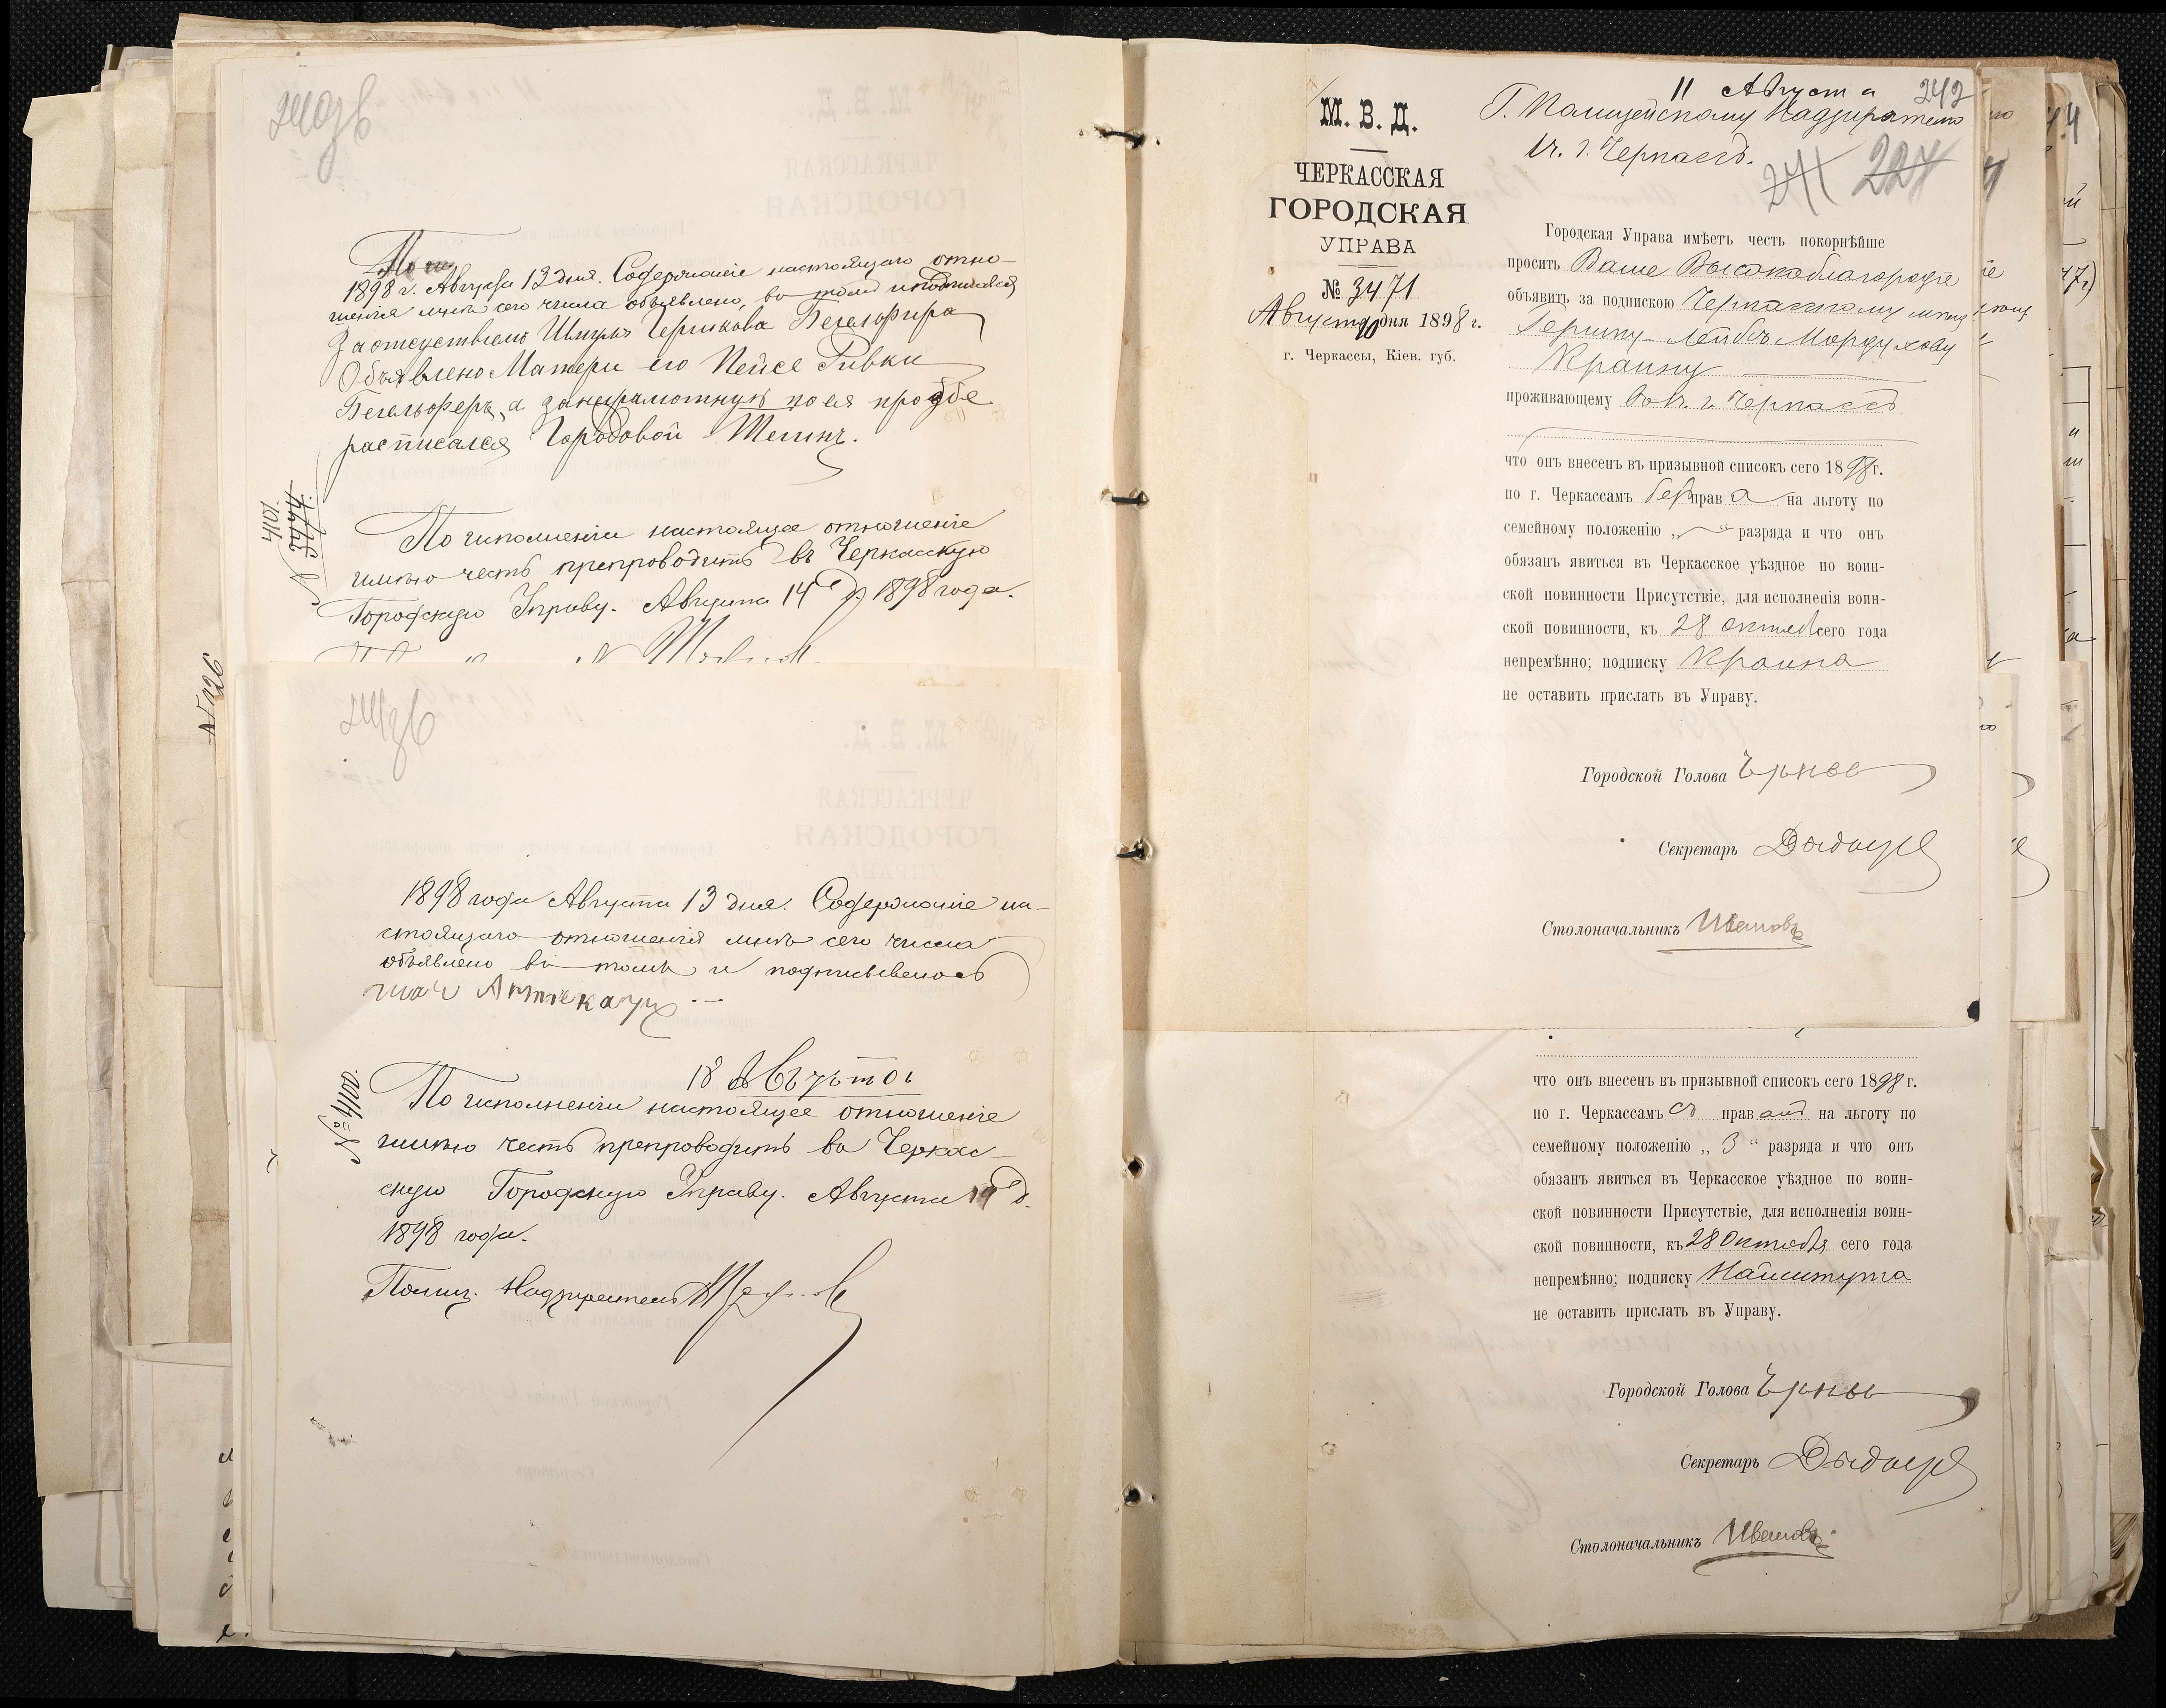 240зв
1898 г. Августа 13 дня. Содержаніе настоящаго отно-
шенія мнѣ сего числа объявлено, въ томъ и подписался
За отсуствіемъ Шмуля Бегельфера
Объявлено Матери его Пейсе Ривки
Бегельферъ, а за неграмотную по ея прозбе
расписался Городовой
№ 3774
4101.
По исполненіи настоящее отношеніе
имѣю честь препроводить въ Черкасскую
Городскую Управу. Августа 14 д. 1898 года.
№ 226
241зв
1898 года Августа 13 дня. Содержаніе на-
стоящаго отношенія мнѣ сего числа
объявлено въ томъ и подписываюсь
18 Августа
№ 4100.
По исполненіи настоящее отношеніе
имѣю честь препроводить въ Черкас-
скую Городскую Управу. Августа 14 д.
1898 года.
Полиц. Надзиратель
11 Августа
242
Г. Полицейскому Надзирателю
1 ч. г. Черкассъ.
241 227
М. В. Д.
ЧЕРКАССКАЯ
ГОРОДСКАЯ
УПРАВА
№ 3471
Августа 10 дня 1898 г.
г. Черкассы, Кіев. губ.
Городская Управа имѣетъ честь покорнѣйше
просить Ваше Высокоблагородіе
объявить за подпискою Черкасскому мѣщ
Гершку-Лейбѣ Мордухову
Краину
проживающему во 1 ч. г. Черкассъ
что онъ внесенъ въ призывной списокъ сего 1898 г.
по г. Черкассамъ безъ права на льготу по
семейному положенію „ – “ разряда и что онъ
обязанъ явиться въ Черкасское уѣздное по воин-
ской повинности Присутствіе, для исполненія воин-
ской повинности, къ 28 октяб сего года
непремѣнно; подписку Краина
не оставить прислать въ Управу.
Городской Голова
Секретарь
Столоначальникъ Ивановъ
что онъ внесенъ въ призывной списокъ сего 1898 г.
по г. Черкассамъ съ правомъ на льготу по
семейному положенію „ 3 “ разряда и что онъ
обязанъ явиться въ Черкасское уѣздное по воин-
ской повинности Присутствіе, для исполненія воин-
ской повинности, къ 28 Октября сего года
непремѣнно; подписку
не оставить прислать въ Управу.
Городской Голова
Секретарь
Столоначальникъ Ивановъ